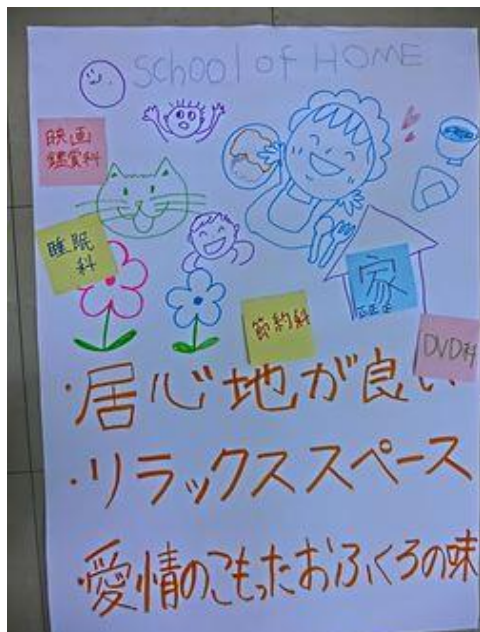 School of HOME
映画
鑑賞科
睡眠
科
家
節約科
DVD科
・居心地が良い
・リラックススペース
・愛情のこもったおふくろの味